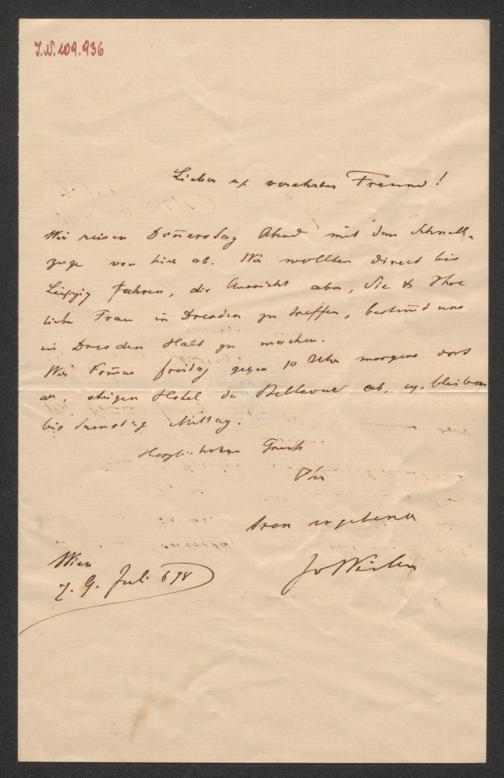 J.N. 109.936
Lieber u. verehrter Freund!
Wir reisen Donnerstag Abend mit dem Schnell-
zuge von hier ab. Wir wollten direct bis
Leipzig fahren, die Aussicht aber, Sie & Ihre
liebe Frau in Dresden zu treffen, bestimmt uns
in Dresden Halt zu machen.
Wir kommen freitag gegen 10 Uhr morgens dort
an, steigen Hotel de Bellevue ab, u. bleiben
bis Samstag Mittag.
Herzlichste Grüße
Ihr
treu ergebener
Wien
9. Juli